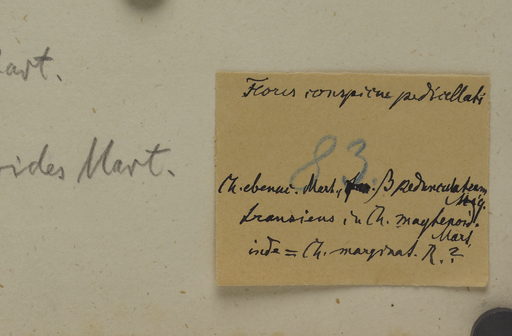 art.
oides Mart.
Flores conspicue pedicellati
83.
Ch. ebenac. Mart., β pedunculatum
Miq.
transiens in Ch. maytenoid.
Mart.
inde = Ch. marginat. R.?